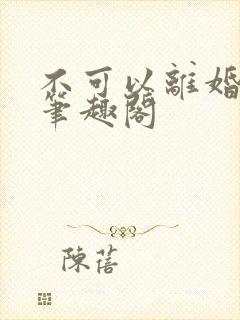 不可以離婚
筆趣閣
陳蓓